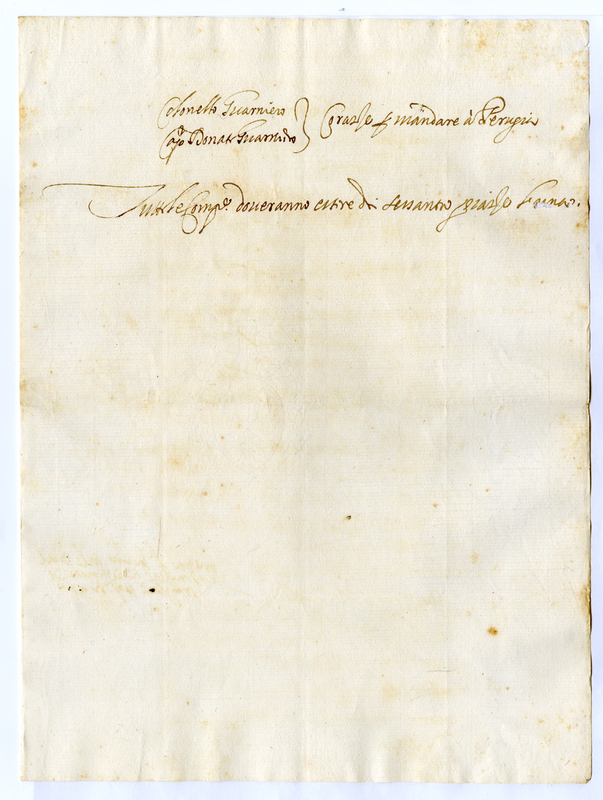 Colonello Guarniero
Cap.o Donat Guarniero } Corazze p mandare à Perugia
Tutte le Comp.e doveranno essere di sessanta piazze l'una.